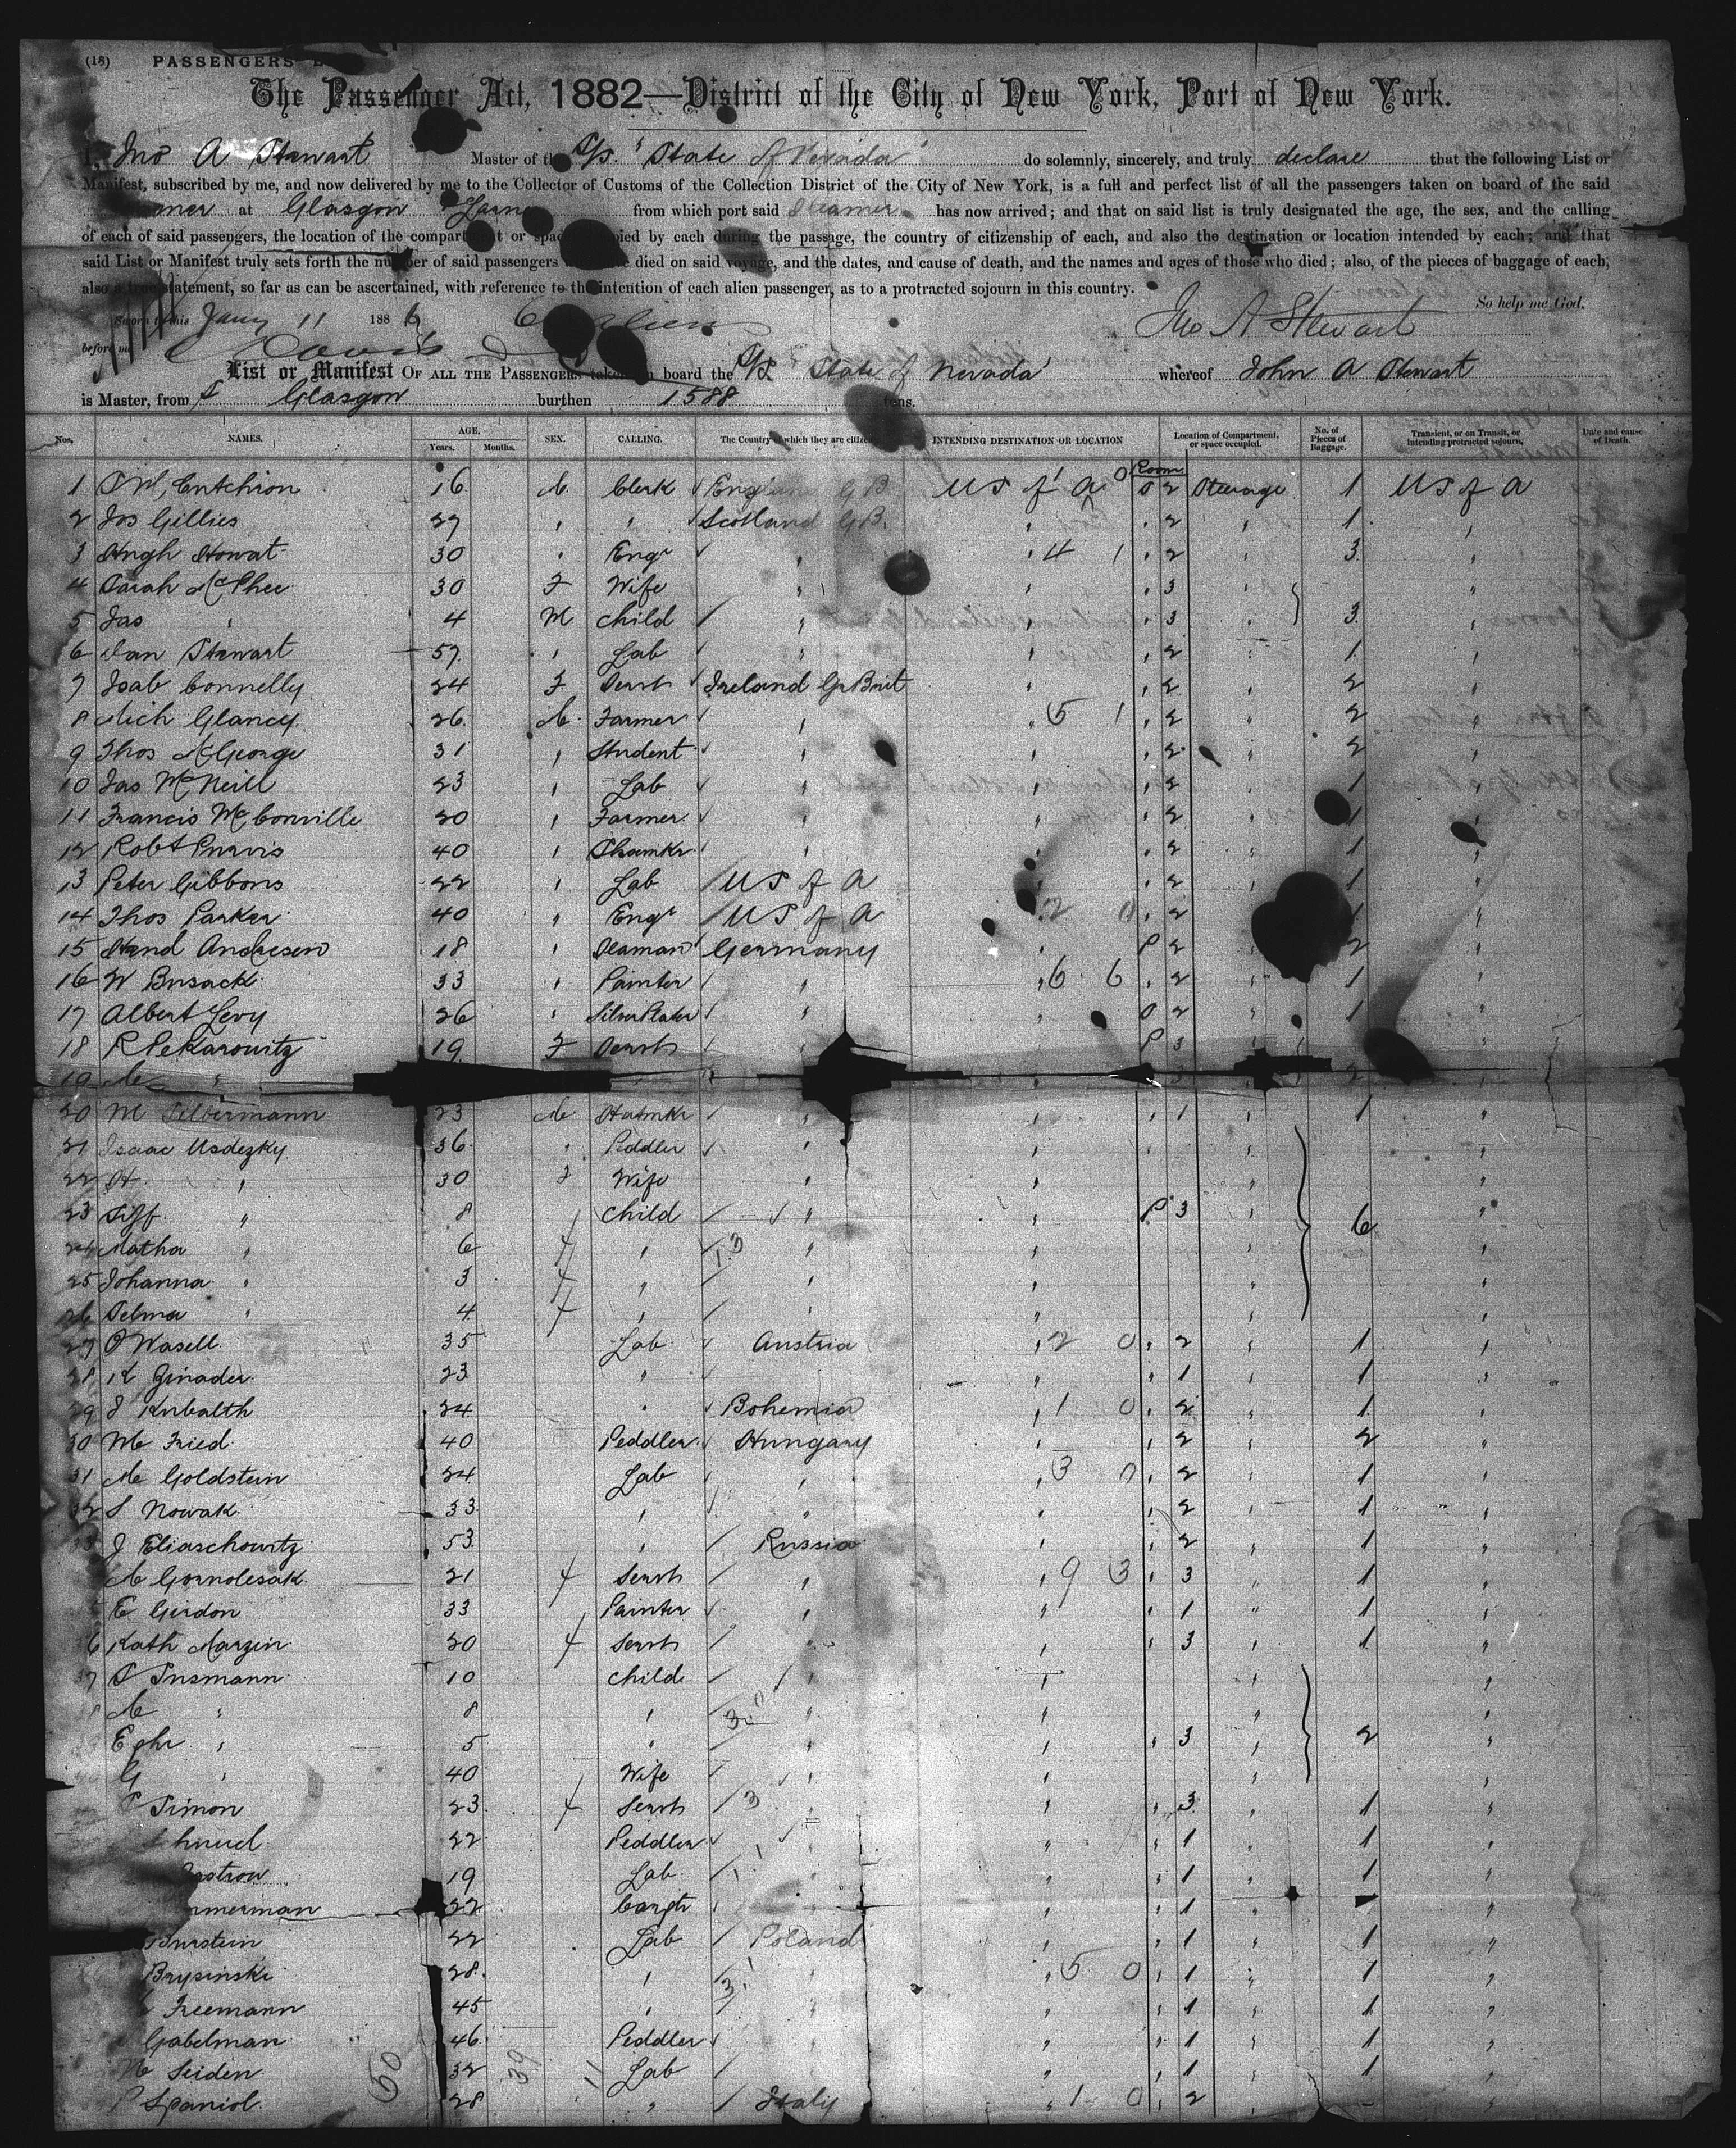 (18) PASSENGERS
The Passenger Act, 1882—District of the City of New York, Port of New York.
I, Jno A Stewart Master of the S/S. "State of Nevada" do solemnly, sincerely, and truly declare that the following List or
Manifest, subscribed by me, and now delivered by me to the Collector of Customs of the Collection District of the City of New York, is a full and perfect list of all the passengers taken on board of the said
at Glasgow Larne from which port said Steamer has now arrived; and that on said list is truly designated the age, the sex, and the calling
of each of said passengers, the location of the compartment or space occupied by each during the passage, the country of citizenship of each, and also the destination or location intended by each; and that
said List or Manifest truly sets forth the number of said passengers died on said voyage, and the dates, and cause of death, and the names and ages of those who died; also, of the pieces of baggage of each,
also a true statement, so far as can be ascertained, with reference to the intention of each alien passenger, as to a protracted sojourn in this country.
So help me God.
Sworn to this Jany 11 1886 Jno A Stewart
before me
List or Manifest OF ALL THE PASSENGERS taken on board the S/S. State of Nevada whereof John A Stewart
is Master, from Glasgow burthen 1588 tons.
Nos. NAMES. AGE. Years. Months. SEX. CALLING. The Country of which they are citizens INTENDING DESTINATION OR LOCATION Location of Compartment, or space occupied. No. of Pieces of Baggage. Transient, or on Transit, or intending protracted sojourn. Date and cause of Death.
Room
1 16 M. Clerk England G B US of A 2 Steerage 1 US of A
2 Jos Gillies 27 " " Scotland G B. " " 2 " 1 "
3 Hugh Howat 30 " Engr " " 4 1 " 2 " 3 "
4 Sarah McPhee 30 F Wife " " " 3 " "
5 Jas " 4 M Child " " " 3 " 3 "
6 Dan Stewart 57 " Lab " " " 2 " 1 "
7 Isab Connelly 24 F Servt Ireland Gr Brit " " 2 " 2 "
8 Mich Glancy 26 M. Farmer " " 5 1 " 2 " 2 "
9 Thos McGeorge 31 " Student " " " 2 " 2 "
10 Jas McNeill 23 " Lab " " " 2 " 1 "
11 Francis McConville 20 " Farmer " " " 2 " 1 "
12 Robt Purvis 40 " " " " 2 " 1 "
13 Peter Gibbons 22 " Lab US of A " " 2 " 1 "
14 Thos Parker 40 " Engr US of A " 2 0 " 2 " 1 "
15 Andresen 18 " Seaman Germany " P 2 " 2 "
16 W Busack 33 " Painter " " 6 6 " 2 " 1 "
17 Albert Levy 26 " Silver Plater " " O 2 " 1 "
18 R Pekarowitz 19 F Servt " " P 3 "
19 M " " " 3 2
20 M Silbermann 23 M " " " 1 " 1 "
21 Isaac Usdezky 36 " Peddler " " " "
22 H. " 30 F Wife " " " "
23 " 8 Child " " P 3 " 6 "
24 Matha " 6 f " 13 " " " "
25 Johanna " 3 f " " " " "
26 Selma " 4 f " " " " "
27 O Wasell 35 Lab Austria " 2 0 " 2 " 1 "
28 K Zinader 23 " " " 1 " 1 "
29 J Kubalth 24 " Bohemia " 1 0 " 2 " 1 "
30 M Fried 40 Peddler Hungary " " 2 " 2 "
31 M Goldstein 24 Lab " " 3 0 " 2 " 1 "
32 S Nowak 33 " " " " 2 " 1 "
33 J Eliaschowitz 53 " Russia " " 2 " 1 "
M Gornolesak 21 f Servt " " 9 3 " 3 " 1 "
E Girdon 33 Painter " " " 1 " 1 "
6 Kath Marzin 20 f Servt " " " 3 " 1 "
37 S Susmann 10 Child " " " "
8 M " 8 " 3 " " " "
Ephr " 5 " " " " 3 " 2 "
G " 40 Wife " " " "
S Simon 23 f Servt 3 " " " 3 " 1 "
Schmul 22 Peddler " " " 1 " 1 "
19 Lab " " " 1 " 1 "
mmerman 22 " " " 1 " "
Burstein 22 Lab Poland " " 1 " 1 "
Brysinski 28 " 3 " " 5 0 " 1 " 1 "
Freemann 45 " " " " 1 " 1 "
Gabelman 46 Peddler " " " 1 " 1 "
M Seiden 32 Lab " " " 1 " 1 "
Spaniol 28 " Italy " 1 0 " 2 " "
50 39 11